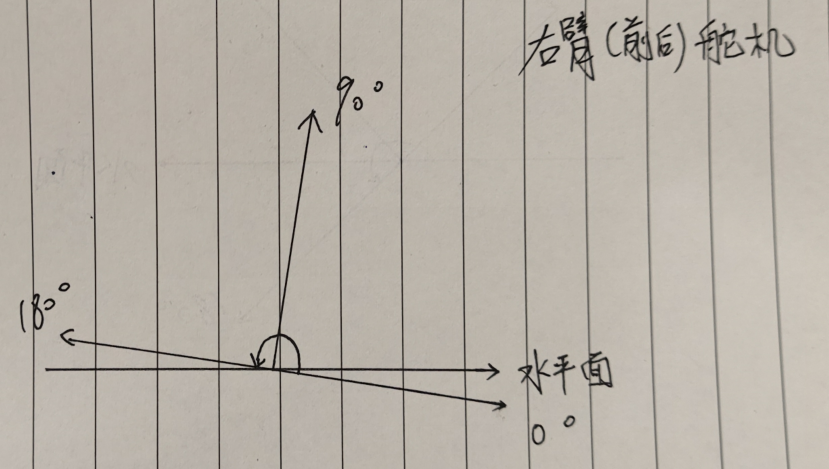 右臂(前后)舵机
90°
180°
水平面
0°